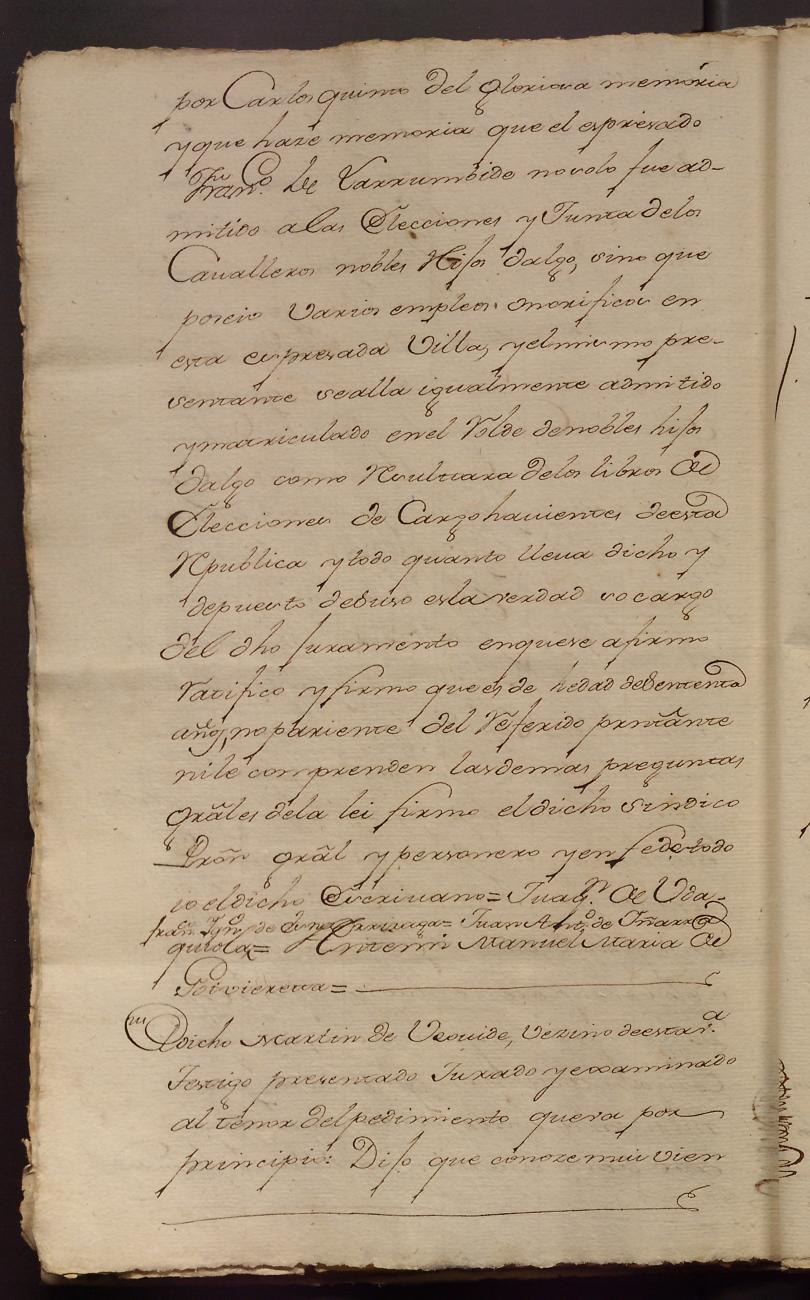 por Carlos quinto del gloriosa memoria
y que haze memoria que el espresado
Franco. de Yarrumbide no solo fue ad-
mitido a las Elecciones y Junta de los
Cavalleros nobles Hijos dalgo, sino que
poseio Varios empleos onorificos en
esta espresada Villa, y el mismo pre-
sentante se alla igualmente admitido
y matriculado en el Rolde de nobles hijos
dalgo como Resultara de los libros de
Elecciones de Cargohauientes de esta
Republica y todo quanto lleva dicho y
depuesto debuso es la verdad so cargo
del dho Juramento en que se afirmo
Ratifico y firmo que es de hedad de setenta
años, no pariente del Referido presentante
ni le comprenden las demas preguntas
grales de la lei firmo el dicho Sindico
Pror. gral y personero y en fe de todo
io el dicho Escriuano= Juaqn. de Uda-
fran. Ign. de = Juan Anto. de
quiola= Antemi Manuel Maria de
=
El dicho Martin de Usouide, Vezino de esta va.
Testigo presentado Jurado y examinado
al tenor del pedimiento que va por
principio: Dijo que conoze mui vien